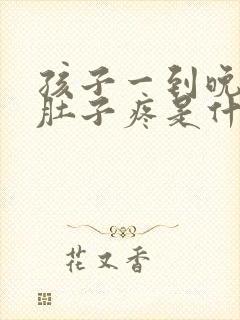 孩子一到晚
肚子疼是什
花又香